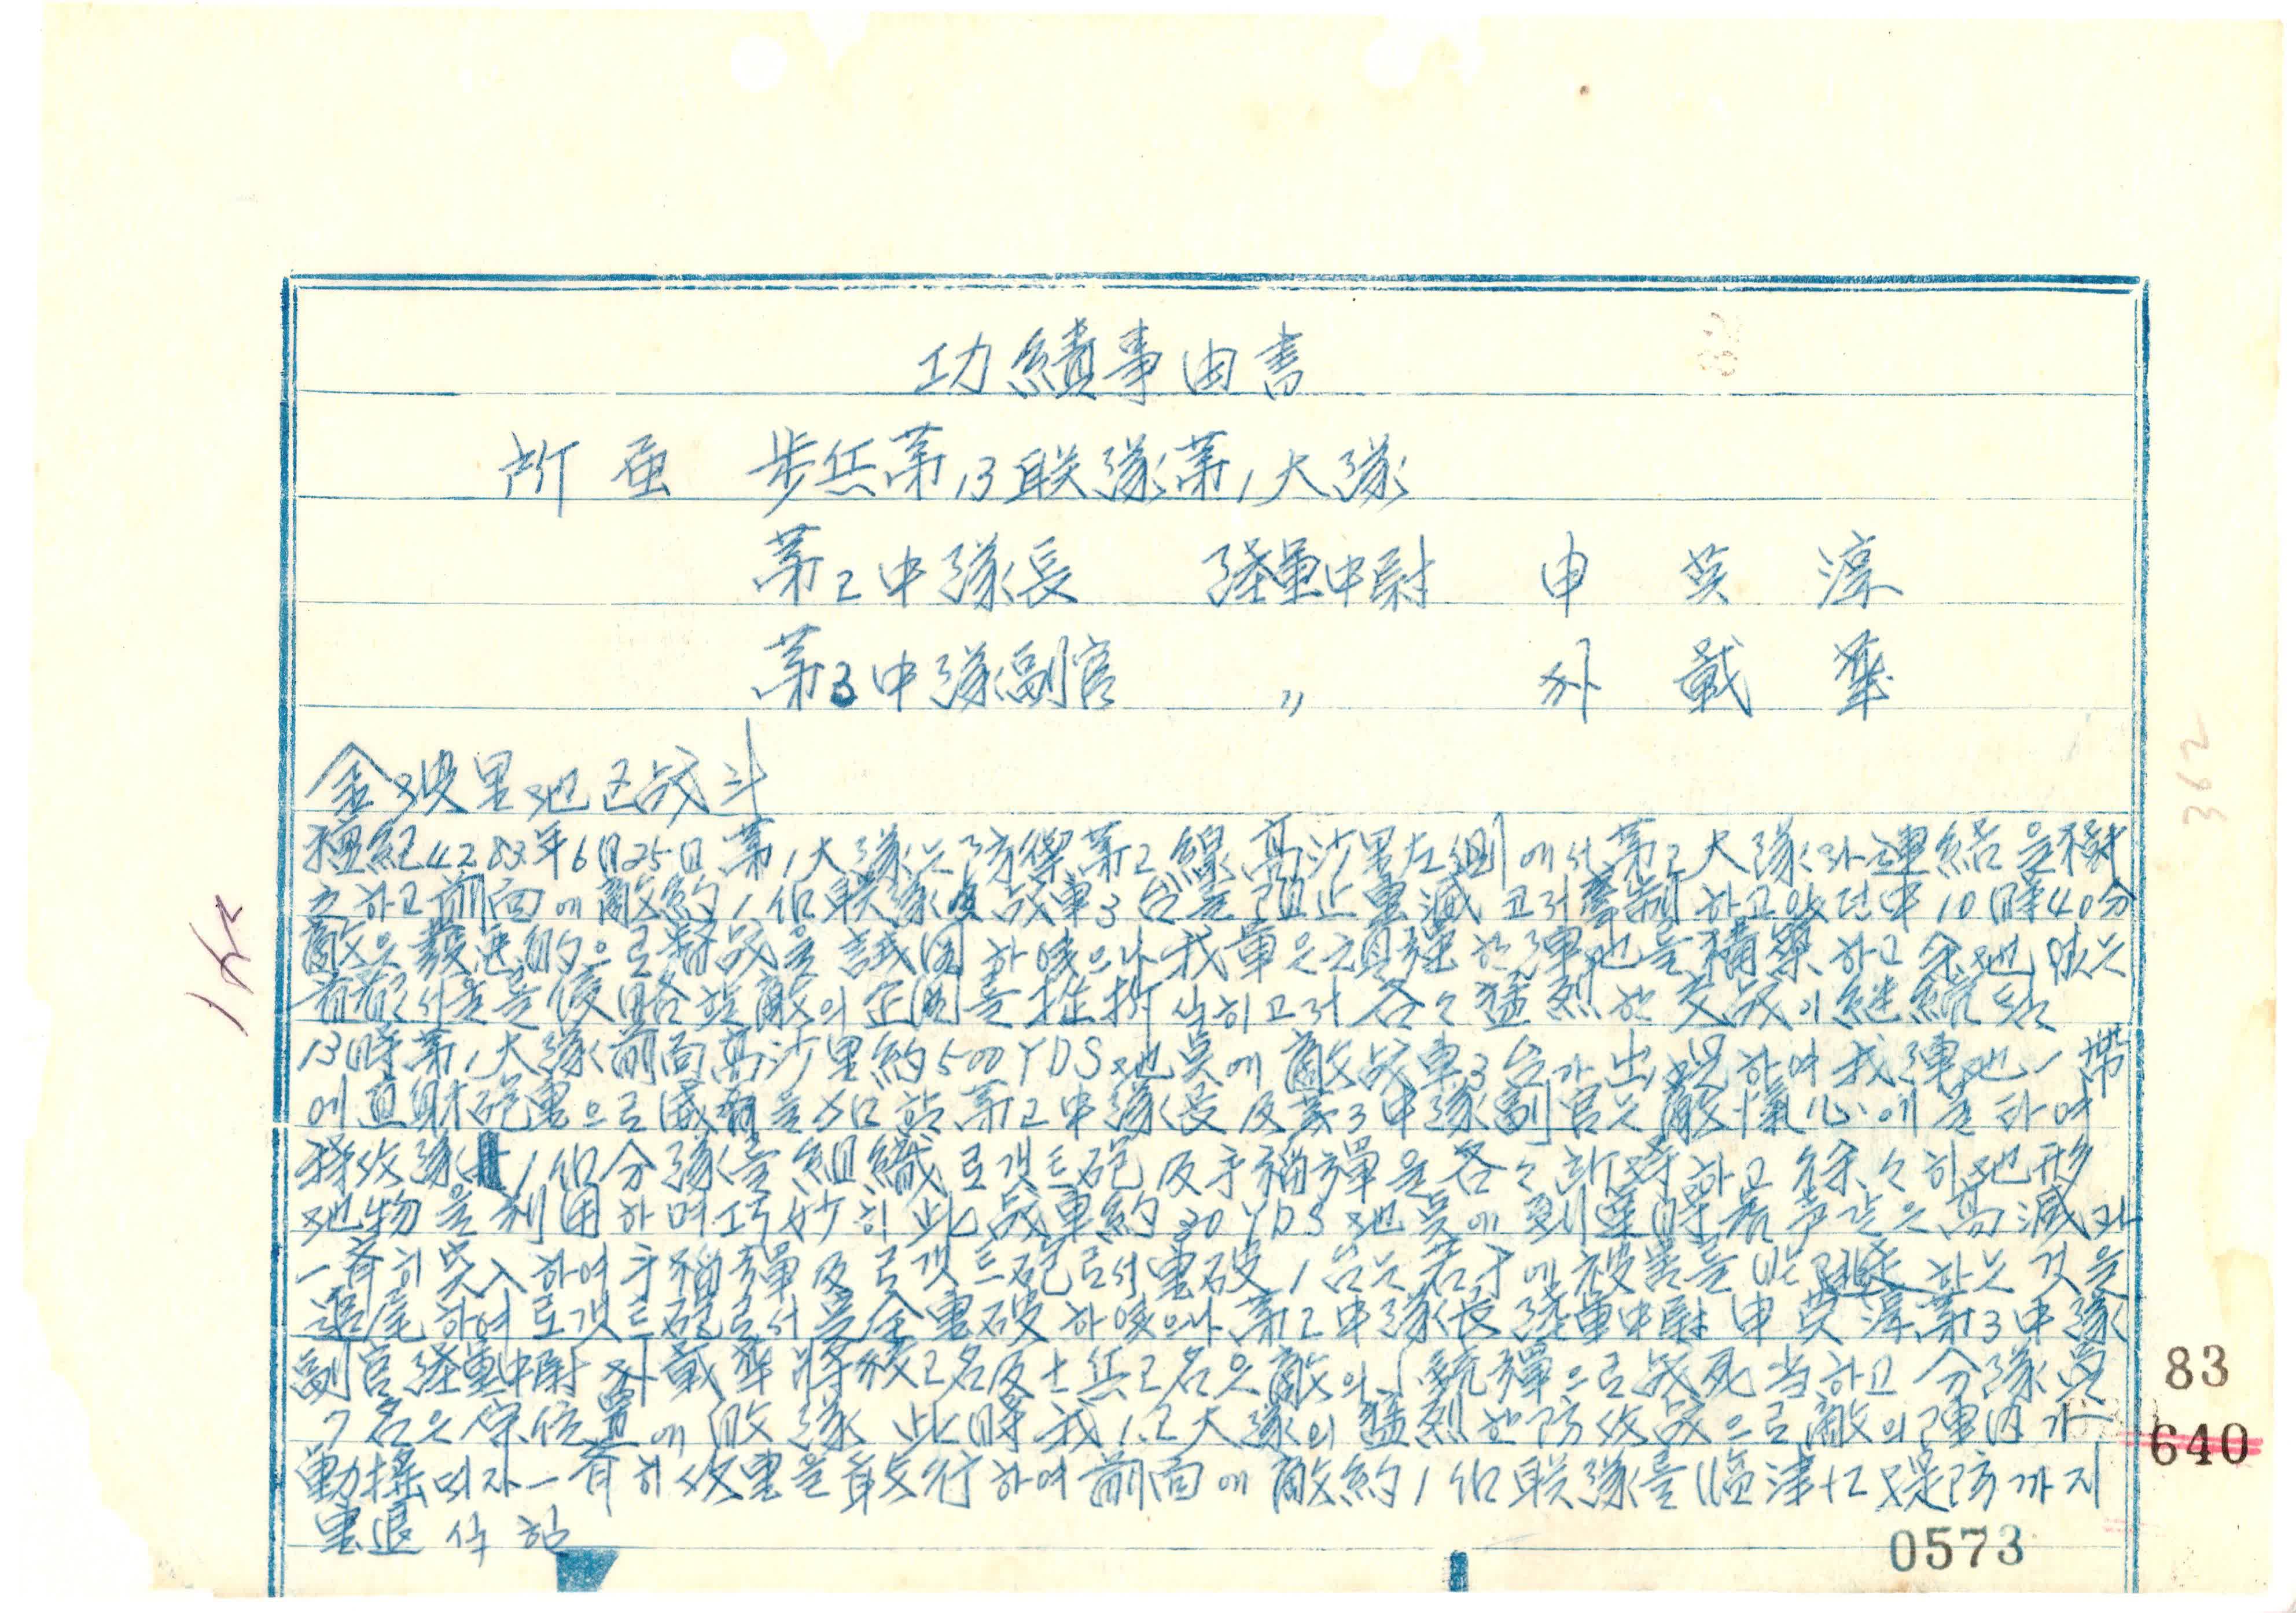 功績事由書
所属 步兵第13联隊第1大隊
第2中隊長 陸軍中尉 申 英 淳
第3中隊副官 〃 朴 載 華
金坡里地区战斗
檀紀4283年6月25日第1大隊는防禦第2線高沙里左側에서第2大隊와連結을樹
立하고前面에敵約1個联隊及战車3台를阻止擊滅코저牽制하고있던中10時40分
敵은 으로 战을試図하였으나我軍은 强한陣地를構築하고余地없는
侵略한敵의企図를挫折식히고저各々猛烈한交战이継続되는
13時第1大隊前面高沙里約500YDS地点에敵战車3台가出現하여我陣地一帶
에直射砲擊으로威脅을 第2中隊長及第3中隊副官은敵愾心에 하여
特攻隊1個分隊를組織로켓트砲及手榴彈을各々所持하고徐々히地形
地物을利用하며巧妙히此战車約30YDS地点에到達時 高 과
一斉히突入하여手榴彈及로켓트砲로서擊破1台는若干에被害를 하는것을
追尾하여로켓트砲로서完全擊破하였으나第2中隊長陸軍中尉申英淳第3中隊
副官陸軍中尉朴載華將校2名及士兵2名은敵의銃彈으로战死当하고分隊員
7名은 位置에 隊此時我1.2大隊의猛烈한防 战으로敵의陣內가
動搖되자一斉히攻擊을敢行하여前面에敵約1個联隊를臨津江堤防까지
擊退식힘
83
640
0573
362